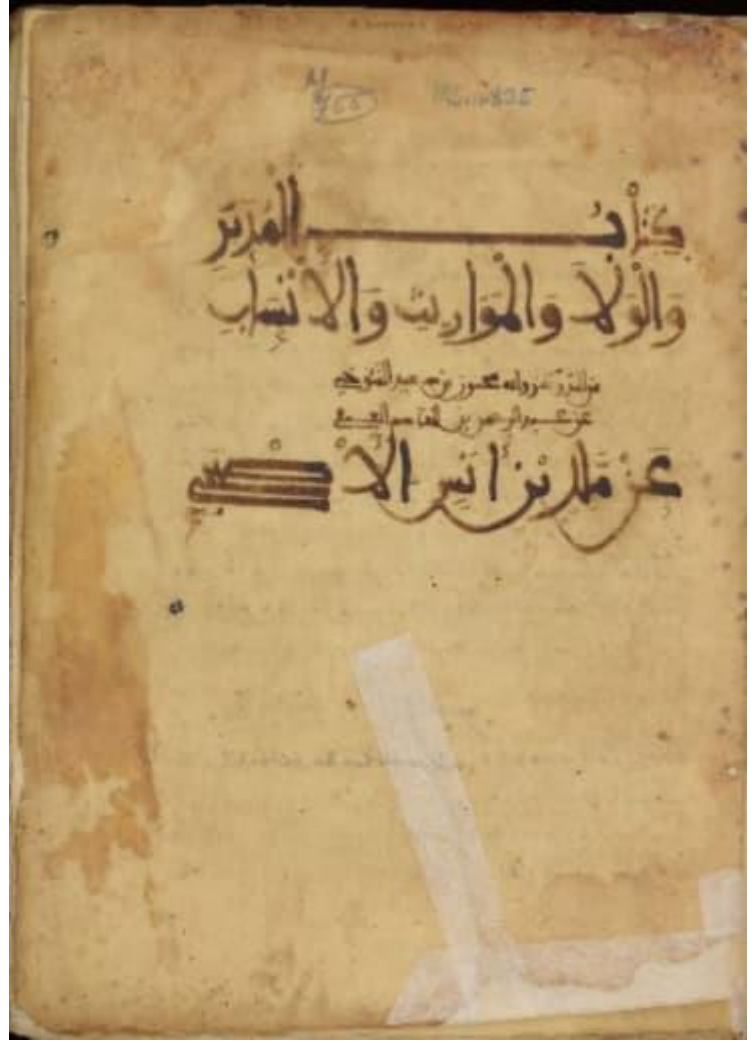 كتاب المدبر
والولا والمواريث والانساب
من المدونة رواية سحنون بن سعيد التنوخي
عن عبد الرحمن بن القاسم العتقي
عن ملك بن انس الاصبحي